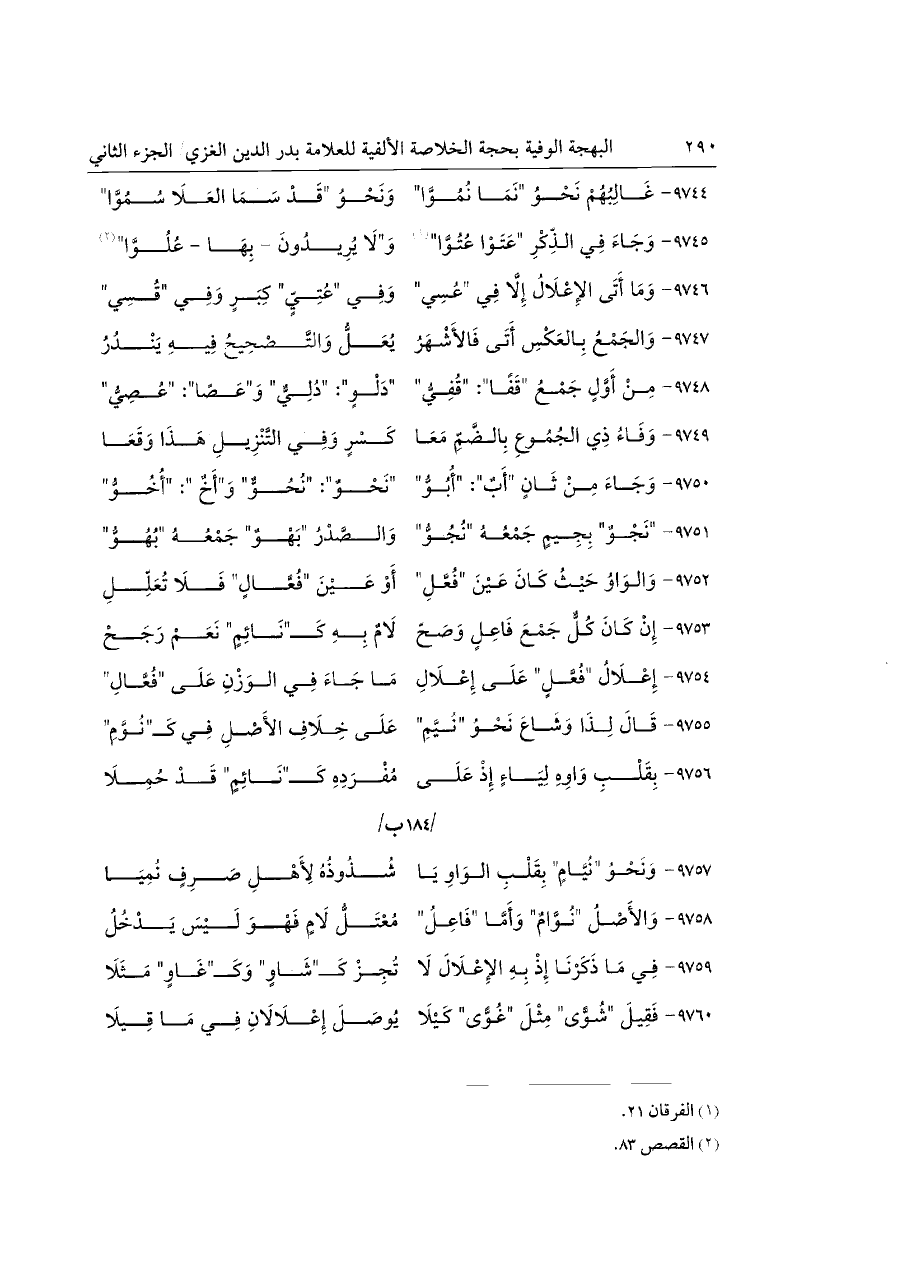 ٢٩٠ البهجة الوفية بحجة الخلاصة الألفية للعلامة بدر الدين الغزي/ الجزء الثاني
٩٧٤٤- غَالِبُهُمْ نَحْوُ "نَمَا نُمُوَّا" وَنَحْوُ "قَدْ سَمَا العَلَا سُمُوَّا"
٩٧٤٥- وَجَاءَ فِي الذِّكْرِ "عَتَوْا عُتُوَّا"(١) وَ"لَا يُرِيدُونَ - بِهَا - عُلُوَّا"(٢)
٩٧٤٦- وَمَا أَتَى الإِعْلَالُ إِلَّا فِي "عُسِي" وَفِي "عُتِيِّ" كِبَرٍ وَفِي "قُسِي"
٩٧٤٧- وَالجَمْعُ بِالعَكْسِ أَتَى فَالأَشْهَرُ يُعَلُّ وَالتَّصْحِيحُ فِيهِ يَنْدُرُ
٩٧٤٨- مِنْ أَوَّلٍ جَمْعُ "قَفَا": "قُفِيُّ" "دَلْوٍ": "دُلِيٌّ" وَ"عَصًا": "عُصِيُّ"
٩٧٤٩- وَفَاءُ ذِي الجُمُوعِ بِالضَّمِّ مَعَا كَسْرٍ وَفِي التَّنْزِيلِ هَذَا وَقَعَا
٩٧٥٠- وَجَاءَ مِنْ ثَانٍ "أَبٌ": "أُبُوُّ" "نَحْوٌ": "نُحُوٌّ" وَ"أَخٌ": "أُخُوُّ"
٩٧٥١- "نَجْوٌ" بِجِيمٍ جَمْعُهُ "نُجُوُّ" وَالصَّدْرُ "بَهْوٌ" جَمْعُهُ "بُهُوُّ"
٩٧٥٢- وَالوَاوُ حَيْثُ كَانَ عَيْنَ "فُعَّلِ" أَوْ عَيْنَ "فُعَّالٍ" فَلَا تُعَلِّلِ
٩٧٥٣- إِنْ كَانَ كُلٌّ جَمْعَ فَاعِلٍ وَصَحّ لَامٌ بِهِ كَـ"نَائِمٍ" نَعَمْ رَجَحْ
٩٧٥٤- إِعْلَالُ "فُعَّلٍ" عَلَى إِعْلَالِ مَا جَاءَ فِي الوَزْنِ عَلَى "فُعَّالِ"
٩٧٥٥- قَالَ لِذَا وَشَاعَ نَحْوُ "نُيَّمِ" عَلَى خِلَافِ الأَصْلِ فِي كَـ"نُوَّمِ"
٩٧٥٦- بِقَلْبِ وَاوِهِ لِيَاءٍ إِذْ عَلَى مُفْرَدِهِ كَـ"نَائِمٍ" قَدْ حُمِلَا
/١٨٤ب/
٩٧٥٧- وَنَحْوُ "نُيَّامٍ" بِقَلْبِ الوَاوِ يَا شُذُوذُهُ لِأَهْلِ صَرِفٍ نُمِيَا
٩٧٥٨- وَالأَصْلُ "نُوَّامٌ" وَأَمَّا "فَاعِلُ" مُعْتَلُّ لَامٍ فَهْوَ لَيْسَ يَدْخُلُ
٩٧٥٩- فِي مَا ذَكَرْنَا إِذْ بِهِ الإِعْلَالَ لَا تُجِزْ كَـ"شَاوٍ" وَكَـ"غَاوٍ" مَثَلَا
٩٧٦٠- فَقِيلَ "شُوَّى" مِثْلَ "غُوَّى" كَيْلَا يُوصَلَ إِعْلَالَانِ فِي مَا قِيلَا
(١) الفرقان ٢١.
(٢) القصص ٨٣.